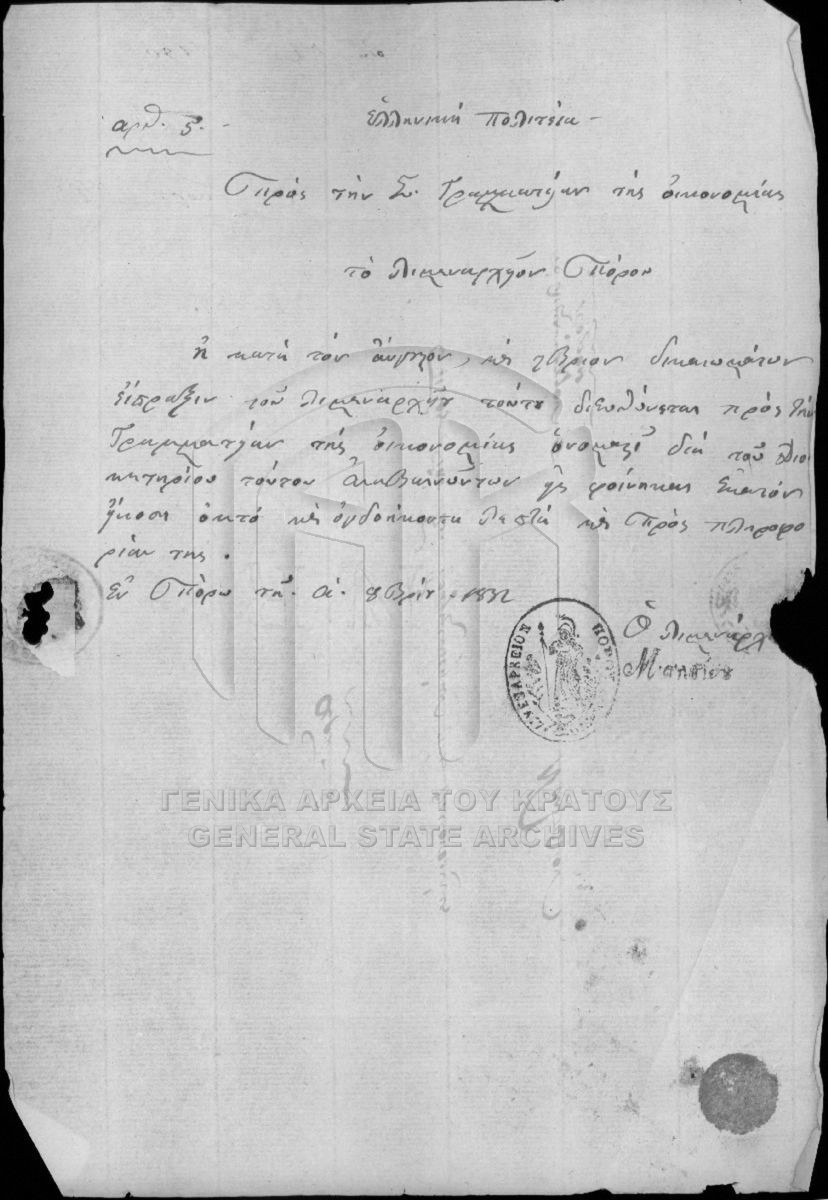 αριθ. 5.
Ἑλληνική Πολιτεία
Πρός την Σ. Γραμματείαν της οἰκονομίας
τό Λιμεναρχεῖον Πόρου
Η κατά τόν αὔγουστον, και 7βριον δικαιωμάτων
εἴσπραξιν τοῦ Λιμεναρχείου τούτου διευθύνεται πρός τήν
Γραμματείαν τῆς οἰκονομίας διά τοῦ Διοι
κητηρίου τούτου εἰς φοίνικας ἑκατόν
ἤκοσι ὀκτό καί ὀγδοήκοντα λεπτά καί πρός πληροφο
ρίαν της.
Εν Πόρω τῆ. α. 8βρίου 1832
Ὁ Λιμενάρχ
ΛΙΜΕΝΑΡΧΕΙΟΝ ΠΟΡΟΥ
ΓΕΝΙΚΑ ΑΡΧΕΙΑ ΤΟΥ ΚΡΑΤΟΥΣ
GENERAL STATE ARCHIVES